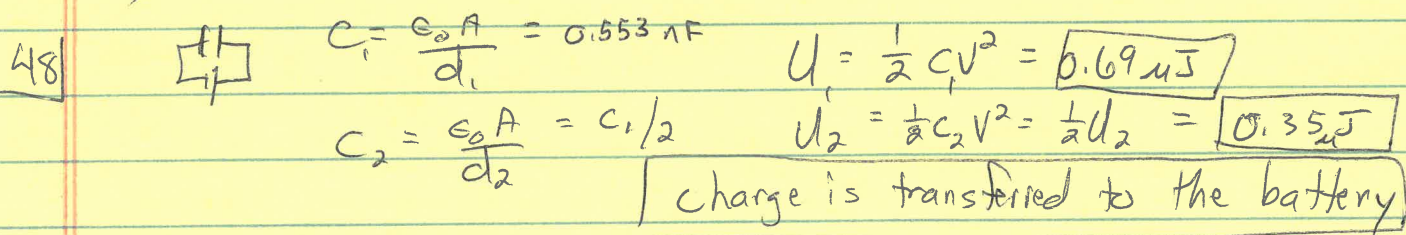 48 C₁ = ε₀A/d₁ = 0.553 nF U₁ = 1/2 C₁V² = 0.69 μJ
C₂ = ε₀A/d₂ = C₁/2 U₂ = 1/2 C₂V² = 1/2 U₂ = 0.35 μJ
charge is transferred to the battery